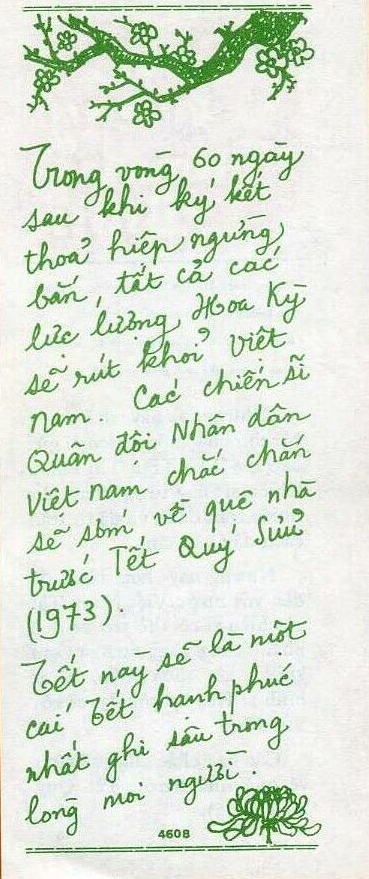 Trong vòng 60 ngày
sau khi ký kết
thoả hiệp ngưng
bắn, tất cả các
lực lượng Hoa Kỳ
sẽ rút khỏi Việt
nam. Các chiến sĩ
Quân đội Nhân dân
Việt nam chắc chắn
sẽ sớm về quê nhà
trước Tết Quý Sửu
(1973).
Tết này sẽ là một
cái Tết hạnh phúc
nhất ghi sâu trong
lòng mọi người.
4608